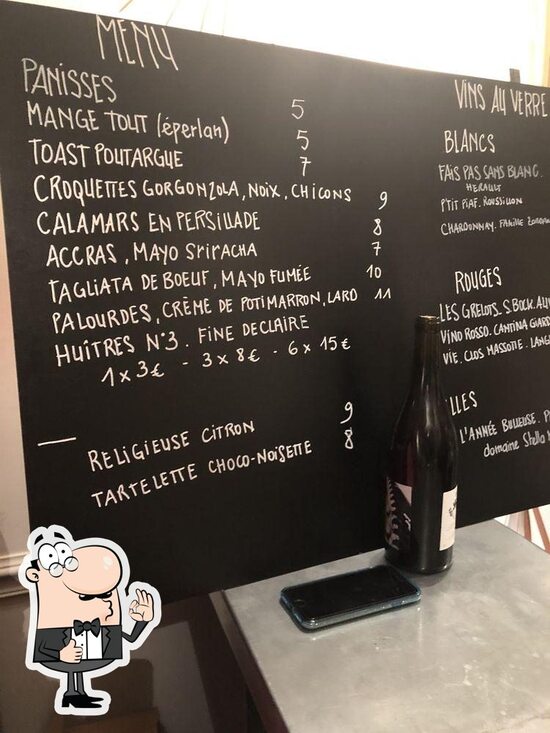 MENU
PANISSES 5
MANGE TOUT (éperlan) 5
TOAST POUTARGUE 7
CROQUETTES GORGONZOLA, NOIX, CHICONS 9
CALAMARS EN PERSILLADE 8
ACCRAS, MAYO SRIRACHA 7
TAGLIATA DE BOEUF, MAYO FUMÉE 10
PALOURDES, CRÈME DE POTIMARRON, LARD 11
HUÎTRES N°3. FINE DE CLAIRE
1 x 3€ - 3 x 8€ - 6 x 15€
RELIGIEUSE CITRON 9
TARTELETTE CHOCO-NOISETTE 8
VINS AU VERRE
BLANCS
FAIS PAS SANS BLANC.
HERAULT
P'TIT PIAF. ROUSSILLON
CHARDONNAY. FAMILLE
ROUGES
LES GRELOTS. S. BOCK.
VINO ROSSO. CANTINA
VIE. CLOS MASSOTTE.
LLES
L'ANNÉE BULLEUSE.
domaine Stella